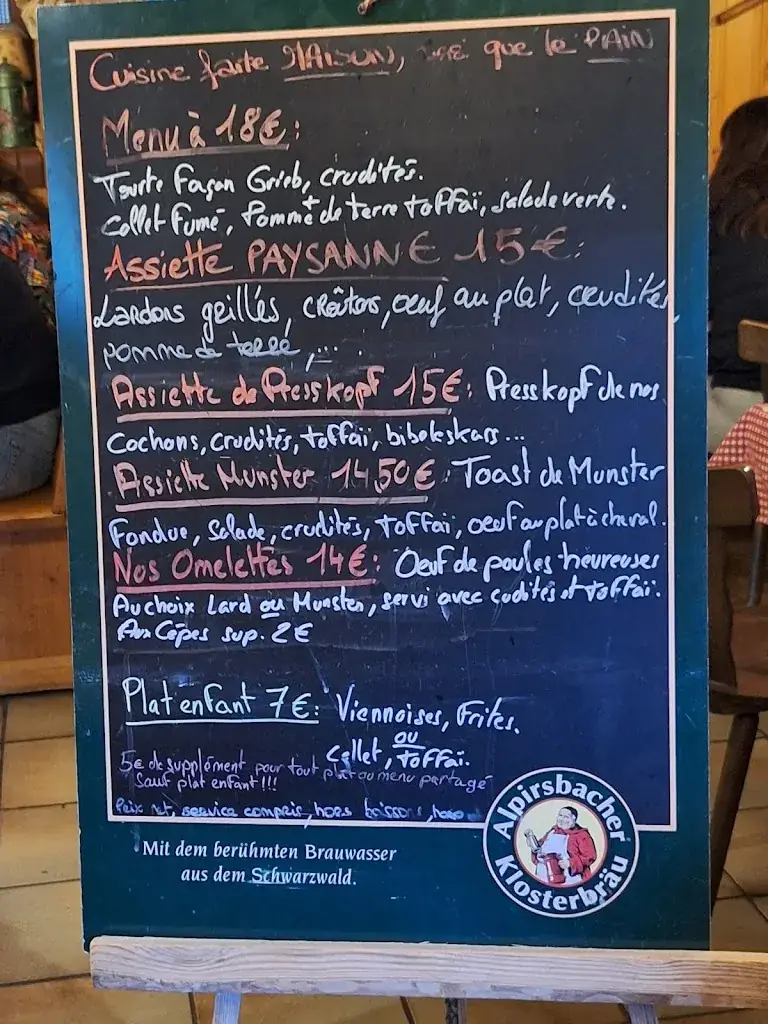 Cuisine faite MAISON, que le PAIN
Menu à 18€:
Tourte Façon Grieb, crudités.
Collet Fumé, Pomme de terre toffaï, salade verte.
Assiette PAYSANNE 15€:
Lardons grillés, croûtons, oeuf au plat, crudités,
pomme de terre, ...
Assiette de Presskopf 15€: Presskopf de nos
Cochons, crudités, toffaï, bibeleskass...
Assiette Munster 14,50€: Toast de Munster
Fondue, Salade, crudités, toffaï, oeuf au plat à cheval.
Nos Omelettes 14€: Oeuf de poules heureuses
Au choix Lard ou Munster, servi avec cudités et toffaï.
Aux Cèpes sup. 2€
Plat enfant 7€: Viennoises, Frites.
ou
Collet, toffaï.
5€ de supplément pour tout plat ou menu partagé
Sauf plat enfant!!!
Prix net, service compris, hors boissons,
Mit dem berühmten Brauwasser
aus dem Schwarzwald.
Alpirsbacher
Klosterbräu